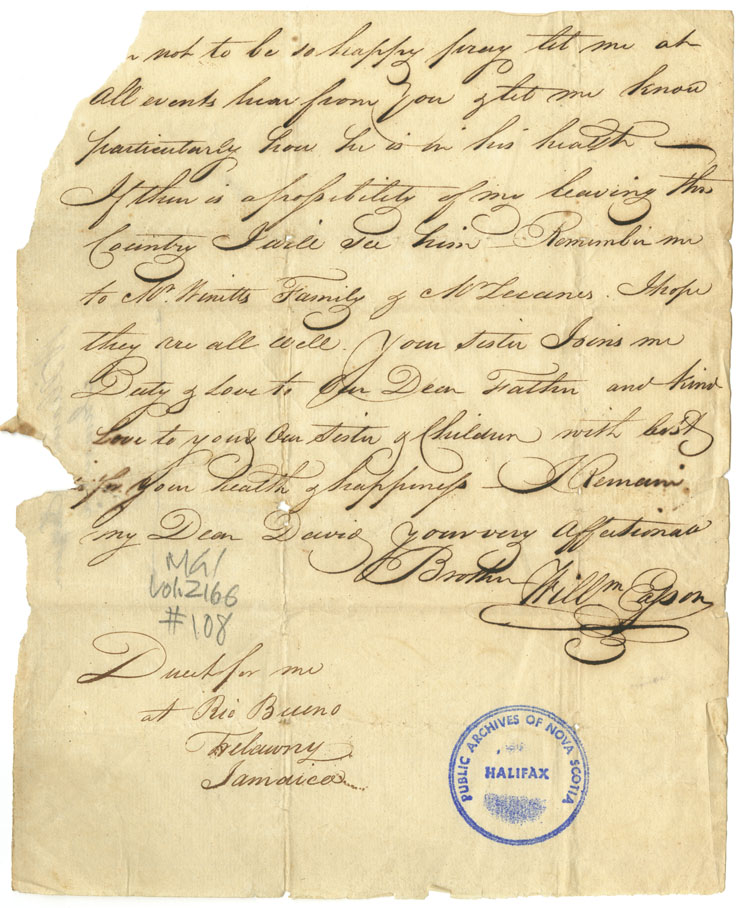 not to be so happy pray let me at
all events hear from you & let me know
particularly how he is in his health —
If there is a possibility of my leaving this
Country I will see him — Remember me
to Mr. Winitts Family & Mr Lecanes. I hope
they are all well. Your Sister Joins me
Duty & Love to Our Dear Father and kind
Love to you & Our Sister & Children with best
for your health & happiness — I Remain
my Dear David your very affectionate
Brother Willm Easson
MG1
Vol. 2166
#108
Direct for me
at Rio Bueno
Trelawny
Jamaica
PUBLIC ARCHIVES OF NOVA SCOTIA
HALIFAX